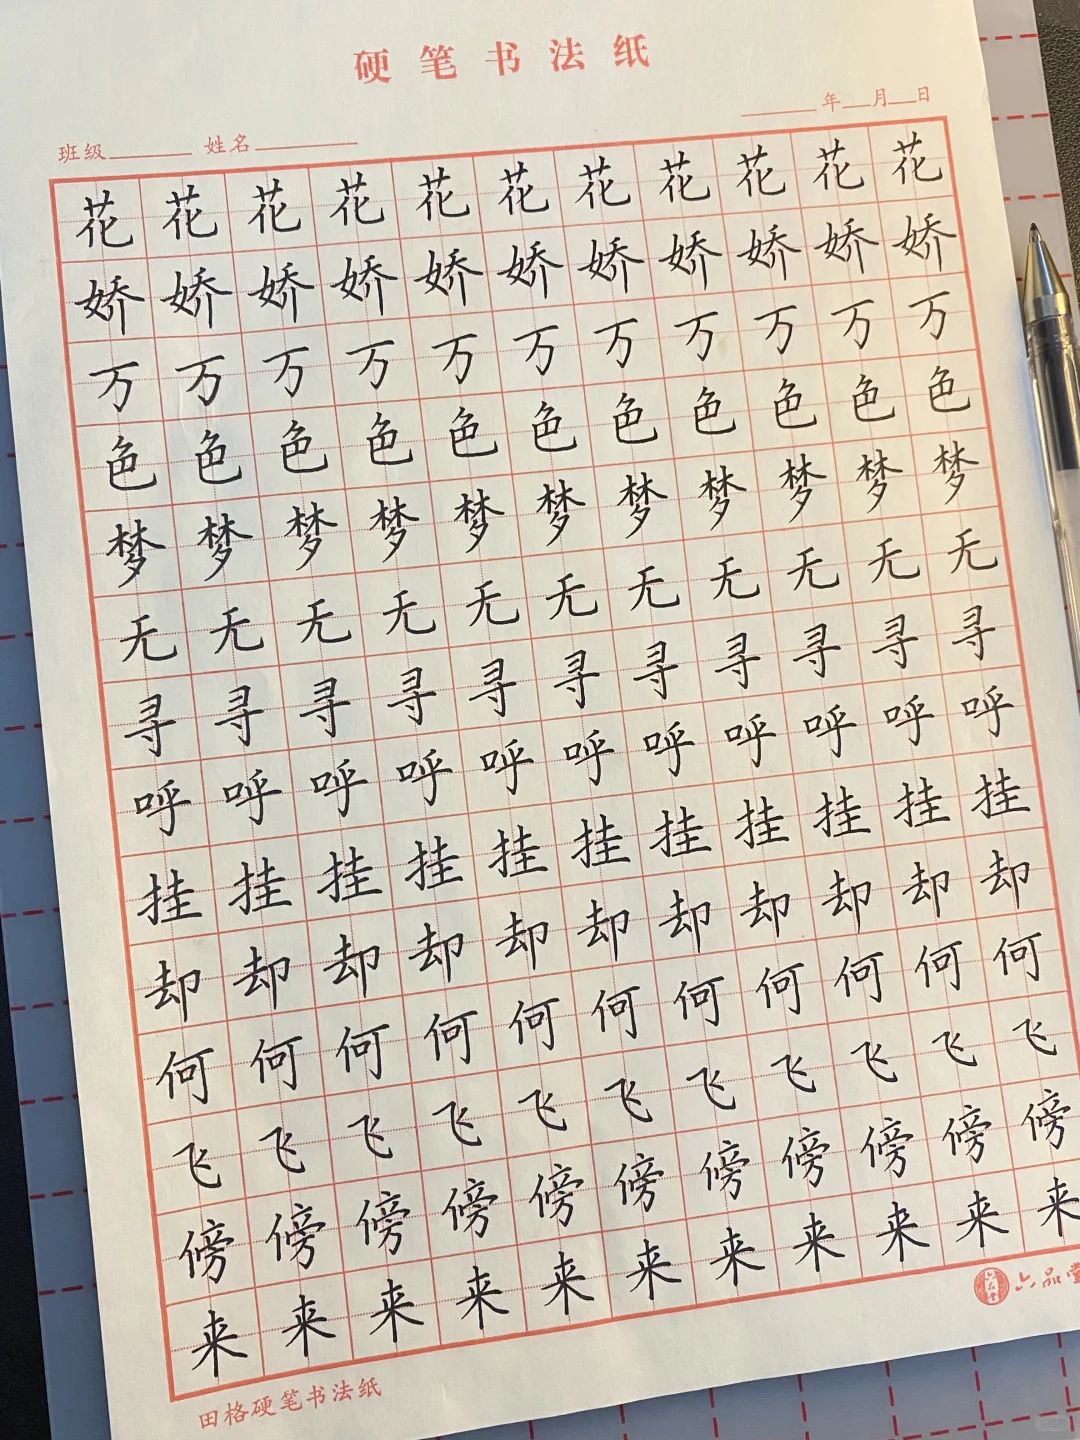 硬笔书法纸
班级 姓名 年 月 日
花花花花花花花花花花花
娇娇娇娇娇娇娇娇娇娇娇
万万万万万万万万万万万
色色色色色色色色色色色
梦梦梦梦梦梦梦梦梦梦梦
无无无无无无无无无无无
寻寻寻寻寻寻寻寻寻寻寻
呼呼呼呼呼呼呼呼呼呼呼
挂挂挂挂挂挂挂挂挂挂挂
却却却却却却却却却却却
何何何何何何何何何何何
飞飞飞飞飞飞飞飞飞飞飞
傍傍傍傍傍傍傍傍傍傍傍
来来来来来来来来来来来
六品堂 六品堂
田格硬笔书法纸